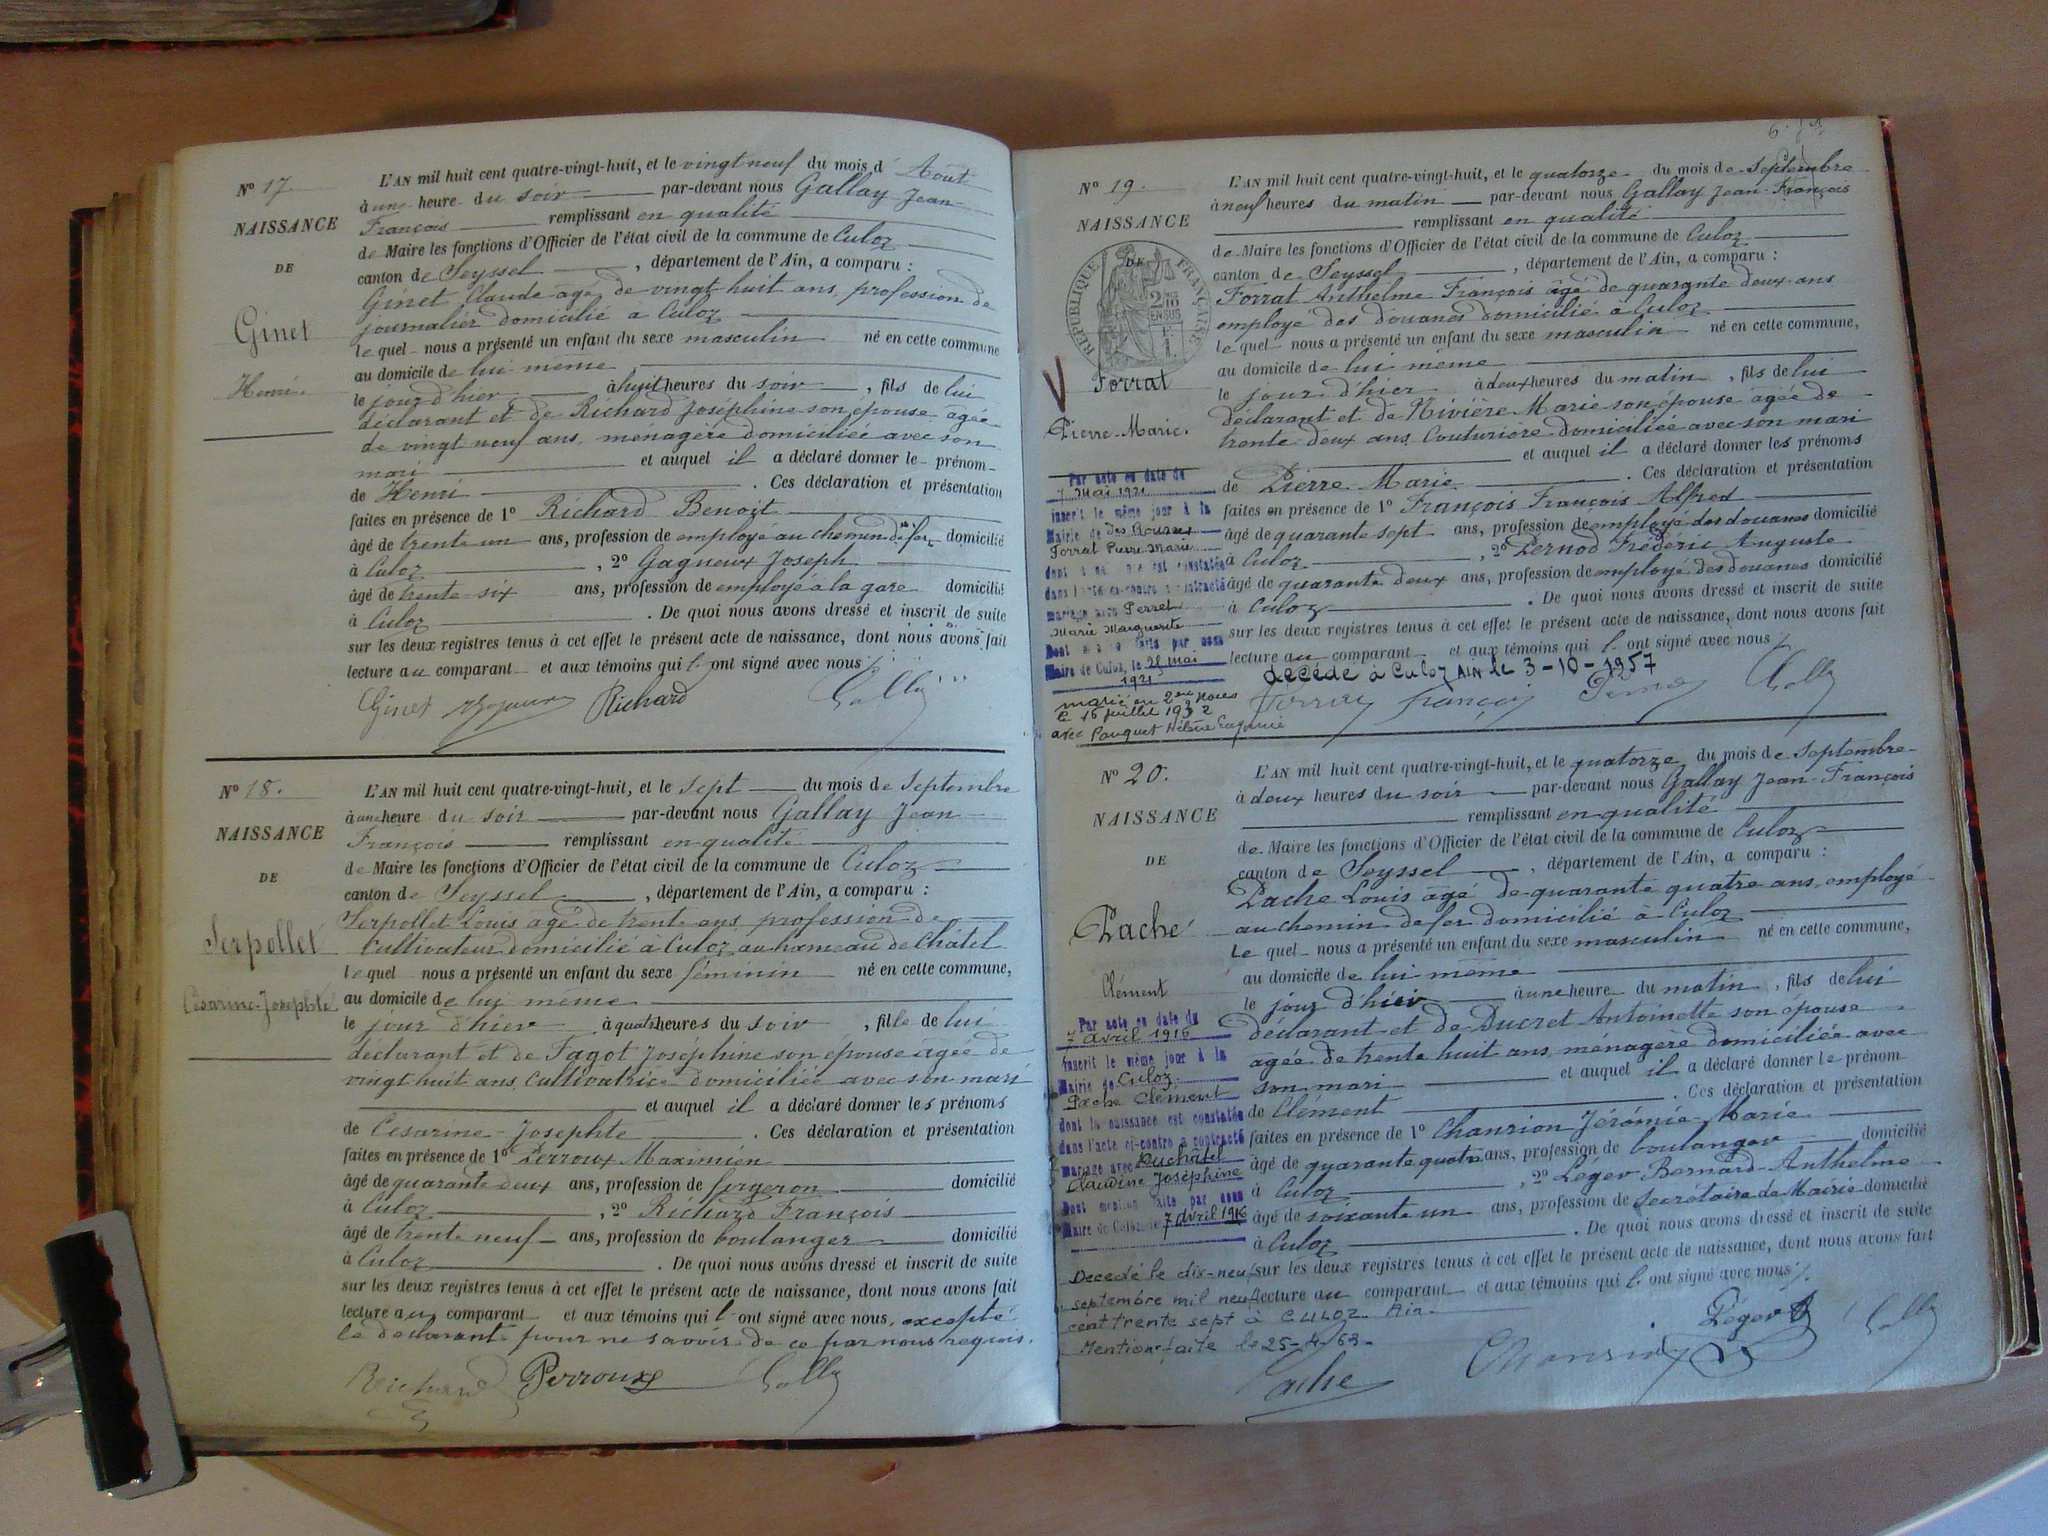 N° 17.
NAISSANCE
DE
Ginet
Henri.
L'AN mil huit cent quatre-vingt-huit, et le vingt neuf du mois d' Aout
à une heure du soir par-devant nous Gallay Jean
François remplissant en qualité
de Maire les fonctions d'Officier de l'état civil de la commune de Culoz
canton de Seyssel, département de l'Ain, a comparu :
Ginet Claude agé de vingt huit ans, profession de
journalier domicilié à Culoz
le quel nous a présenté un enfant du sexe masculin né en cette commune
au domicile de lui même
le jour d'hier à huit heures du soir, fils de lui
déclarant et de Richard Joséphine son épouse agée
de vingt neuf ans, ménagère domiciliée avec son
mari et auquel il a déclaré donner le prénom
de Henri. Ces déclaration et présentation
faites en présence de 1° Richard Benoit
âgé de trente un ans, profession de employé au chemin de fer domicilié
à Culoz, 2° Gagneux Joseph
âgé de trente six ans, profession de employé à la gare domicilié
à Culoz. De quoi nous avons dressé et inscrit de suite
sur les deux registres tenus à cet effet le présent acte de naissance, dont nous avons fait
lecture au comparant et aux témoins qui l'ont signé avec nous
Ginet Richard Gallay
N° 18.
NAISSANCE
DE
Serpollet
Césarine-Josephte
L'AN mil huit cent quatre-vingt-huit, et le sept du mois de Septembre
à une heure du soir par-devant nous Gallay Jean
François remplissant en qualité
de Maire les fonctions d'Officier de l'état civil de la commune de Culoz
canton de Seyssel, département de l'Ain, a comparu :
Serpollet Louis agé de trente ans, profession de
Cultivateur domicilié à Culoz au hameau de Châtel
le quel nous a présenté un enfant du sexe féminin né en cette commune,
au domicile de lui même
le jour d'hier à quatre heures du soir, fille de lui
déclarant et de Fagot Joséphine son épouse agée de
vingt huit ans, Cultivatrice domiciliée avec son mari
et auquel il a déclaré donner les prénoms
de Césarine-Josephte. Ces déclaration et présentation
faites en présence de 1° Perroux Maximien
âgé de quarante deux ans, profession de forgeron domicilié
à Culoz, 2° Richard François
âgé de trente neuf ans, profession de boulanger domicilié
à Culoz. De quoi nous avons dressé et inscrit de suite
sur les deux registres tenus à cet effet le présent acte de naissance, dont nous avons fait
lecture au comparant et aux témoins qui l'ont signé avec nous, excepté
le déclarant pour ne savoir de ce par nous requis.
Richard Perroux Gallay
N° 19.
NAISSANCE
DE
RÉPUBLIQUE FRANÇAISE
Forrat
Pierre-Marie.
Par acte en date de
7 Mai 1921
inscrit le même jour à la
Mairie de des Rousses
Forrat Pierre Marie
dont la naissance est constatée
dans l'acte ci-contre a contracté
mariage avec Perret
Marie Marguerite
Dont mention faite par nous
Maire de Culoz, le 25 mai
1921
marié en 2emes noces
le 16 juillet 1932
avec Pauget Hélène Eugénie
L'AN mil huit cent quatre-vingt-huit, et le quatorze du mois de Septembre
à neuf heures du matin par-devant nous Gallay Jean-François
remplissant en qualité
de Maire les fonctions d'Officier de l'état civil de la commune de Culoz
canton de Seyssel, département de l'Ain, a comparu :
Forrat Anthelme François âgé de quarante deux ans
employé des douanes domicilié à Culoz
le quel nous a présenté un enfant du sexe masculin né en cette commune,
au domicile de lui même
le jour d'hier à deux heures du matin, fils de lui
déclarant et de Nivière Marie son épouse agée de
trente deux ans, Couturière domiciliée avec son mari
et auquel il a déclaré donner les prénoms
de Pierre Marie. Ces déclaration et présentation
faites en présence de 1° François François Alfred
âgé de quarante sept ans, profession de employé des douanes domicilié
à Culoz, 2° Pernod Frédéric Auguste
âgé de quarante deux ans, profession de employé des douanes domicilié
à Culoz. De quoi nous avons dressé et inscrit de suite
sur les deux registres tenus à cet effet le présent acte de naissance, dont nous avons fait
lecture au comparant et aux témoins qui l'ont signé avec nous
décédé à Culoz AIN le 3-10-1957
Forrat François Pernod Gallay
N° 20.
NAISSANCE
DE
Pache
Clément
Par acte en date du
7 avril 1916
inscrit le même jour à la
Mairie de Culoz
Pache Clément
dont la naissance est constatée
dans l'acte ci-contre a contracté
mariage avec Duchâtel
Claudine Joséphine
Dont mention faite par nous
Maire de Culoz, le 7 avril 1916
Décédé le dix-neuf
septembre mil neuf
cent trente sept à CULOZ Ain.
Mention faite le 25-4-63-
L'AN mil huit cent quatre-vingt-huit, et le quatorze du mois de Septembre
à deux heures du soir par-devant nous Gallay Jean-François
remplissant en qualité
de Maire les fonctions d'Officier de l'état civil de la commune de Culoz
canton de Seyssel, département de l'Ain, a comparu :
Pache Louis âgé de quarante quatre ans, employé
au chemin de fer domicilié à Culoz
Le quel nous a présenté un enfant du sexe masculin né en cette commune,
au domicile de lui même
le jour d'hier à une heure du matin, fils de lui
déclarant et de Ducret Antoinette son épouse
agée de trente huit ans, ménagère domiciliée avec
son mari et auquel il a déclaré donner le prénom
de Clément. Ces déclaration et présentation
faites en présence de 1° Chansion Jérémie-Marie
âgé de quarante quatre ans, profession de boulanger domicilié
à Culoz, 2° Léger Bernard-Anthelme
âgé de soixante un ans, profession de Secrétaire de Mairie domicilié
à Culoz. De quoi nous avons dressé et inscrit de suite
sur les deux registres tenus à cet effet le présent acte de naissance, dont nous avons fait
lecture au comparant et aux témoins qui l'ont signé avec nous
Pache Chansion Léger Gallay